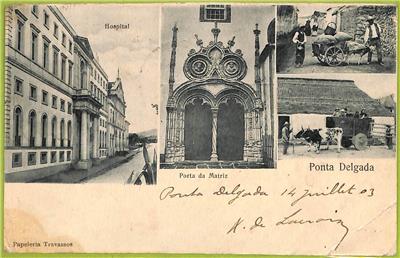 Hospital
Porta da Matriz
Ponta Delgada
Ponta Delgada 14 juillet 03
Papelaria Travassos